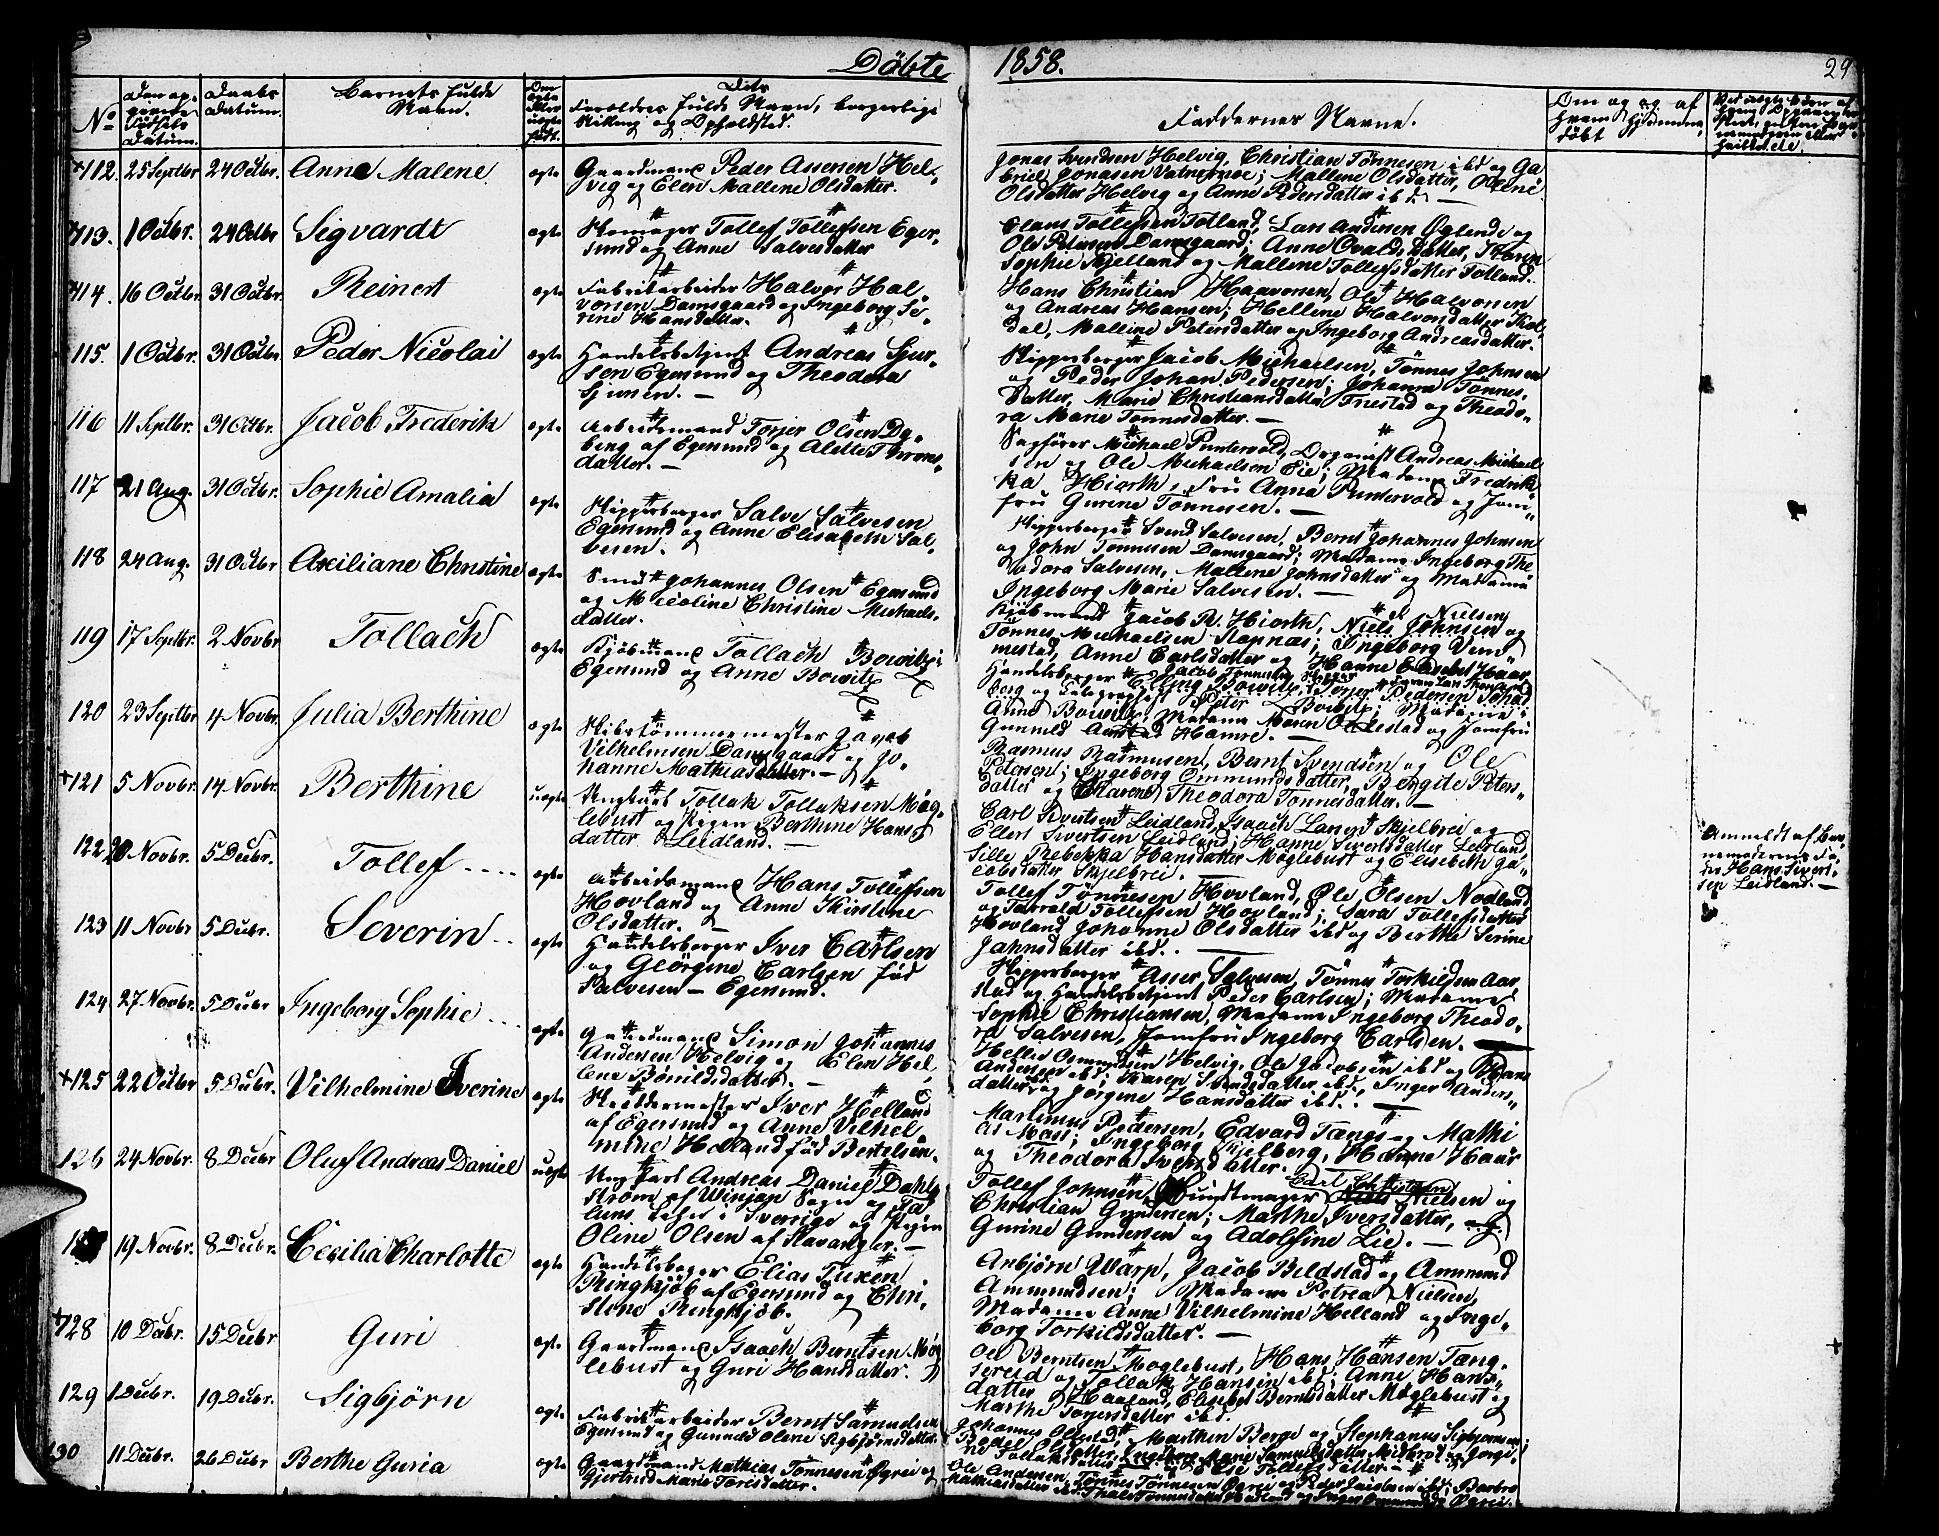 Döbte 1858. 29
No
Den opgivne Födsels Datum.
Daabs Datum.
Barnets fulde Navn.
Om ægte eller uægte födt.
Dets Forældres fulde Navn, borgerlige Stilling og Opholdsted.
Faddernes Navne.
Om og af hvem hjemmedöbt
+112. 25 Septbr 24 Octbr. Anne Malene. ægte
Gaardmand Peder Assersen Hel-
veg og Elen Mallene Olsdatter.
Jonas Svendsen Helvig, Christian Tönnesen ibd og Ga
briel Jonasen Vatnemoe; Mallene Olsdatter, Oline
Olsdatter Helvig og Anne Pedersdatter ibd. —
+113. 1 Octbr. 24 Octbr Sigvardt ægte
Skomager Tollef Tollefsen Eger-
sund og Anne Salvesdatter
Olaus Tollefsen Totland, Lars Andersen Öglende og
Ole Petersen Damsgaard; Anne Ovaldsdatter, Karen
Sophie Kjelland og Mallene Tollefsdatter Totland.
+114. 16 Octbr. 31 Octbr. Reinert ægte
Fabrikarbeider Halvor Hal
vorsen Damsgaard og Ingeborg Se-
rine Hansdatter.
Hans Christian Haavorsen, Ole Halvorsen
og Andreas Hansen; Hellene Halvorsdatter Kol-
dal, Mallene Petersdatter og Ingeborg Andreasdatter.
115. 1 Octbr. 31 Octbr Peder Nicolai ægte
Handelsbetjent Andreas Sjur-
sen Egersund og Theodora
Sjursen. —
Skipperborger Jacob Michaelsen, Tönnes Johnsen
og Peder Johan Pedersen; Johanna Tönnes-
datter, Marie Christiansdatter Friestad og Theodo-
ra Marie Tönnesdatter. —
116 11 Septbr. 31 Octbr. Jacob Frederik ægte
Arbeidsmand Torjer Olsen Dy-
bing af Egersund og Alette Thorens-
datter. —
Sagförer Michael Puntervold, Organist Andreas Michael
sen og Ole Michaelsen Eie; Madame Fredrik
ka Hiorth, Fru Anna Puntervold og Jom-
fru Gurine Tönnesen. —
117 21 Aug. 31 Octbr. Sophie Amalia ægte
Skipperborger Salve Salvesen
Egersund og Anne Elisabeth Sal-
vesen.
Skipperborger Svend Salvesen, Bernt Johannes Johnsen
og John Tönnesen Damsgaard; Madame Ingeborg The
odora Salvesen, Mallene Johnsdatter og Madame
Ingeborg Marie Salvesen. —
118 24 Aug. 31 Octbr Axiliane Christine ægte
Smed Johannes Olsen Egersund
og Nicoline Christine Michaels-
datter.
Kjöbmand Jacob R. Hiorth, Niels Johnsen
Tönnes Michaelsen Rapnæs; Ingeborg Vem
mestad, Anne Carlsdatter og Hanne Elisabet Haar
119 17 Septbr. 2 Novbr Tollach ægte
Kjöbmand Tollach Bowitz i
Egersund og Anne Bowitz
120 23 Septbr 4 Novbr. Julia Berthine ægte
Skibstömmermester Jacob
Vilhelmsen Damsgaard og Jo-
hanne Mathiasdatter. —
Rasmus Rasmusen, Bernt Svendsen og Ole
Petersen; Ingeborg Ommundsdatter, Bergite Peters-
datter og Theodora Tönnesdatter. —
+121 5 Novbr. 14 Novbr. Berthine uægte
Ungkarl Tollak Tollaksen Møg-
lebust og Pigen Berthine Hans-
datter Leidland. —
Carl Sivertsen Leidland, Isaach Larsen Skjelbrei og
Ellert Sivertsen Leidland; Hanne Sivertsdatter Leidland
Sille Rebekka Hansdatter Møglebust og Elisebeth Ja-
cobsdatter Skjelbrei. —
Anmeldt af Bar-
nemoderens Fa-
der Hans Sivert-
sen Leidland. —
122 20 Novbr. 5 Decbr. Tollef ægte
Arbeidsmand Hans Tollefsen
Hovland og Anne Kirstine
Olsdatter. —
Tollef Tönnesen Hovland, Ole Olsen Nodland
og Tarrald Tollefsen Hovland; Sara Tollefsdatter
Hovland Johanne Olsdatter ibd og Berthe Serine
Jahnsdatter ibd. —
123 11 Novbr 5 Decbr. Severin ægte
Handelsborger Iver Carlsen
og Geörgine Carlsen föd
Salvesen — Egersund.
Skipperborger Asser Salvesen, Tönnes Torkildsen Aar
stad og Handelsbetjent Peder Carlsen; Madame
Sophie Christiansen, Madame Ingeborg Theodo-
ra Salvesen, Jomfru Ingeborg Carlsen. —
124 27 Novbr. 5 Decbr Ingeborg Sophie ægte
Gaardmand Simon Johannes
Andersen Helvig og Elen Hel-
lene Bönildsdatter. —
Hellie Osmundsen Helvig, Ole Jacobsen ibd og Hans
Andersen ibd; Karen Svendsdatter ibd, Inger Anders-
datter ibd og Jörgine Hansdatter ibd. —
+125 22 Octbr 5 Decbr. Vilhelmine Iverine ægte
Skræddermester Iver Helland
af Egersund og Anne Vilhel
mine Helland föd Bertelsen.
Martinus Pedersen, Edvard Tængs og Mathi
as Mast; Ingeborg Kjelberg, Hanne Haar
og Theodora Svensdatter. —
126 24 Novbr. 8 Decbr Oluf Andreas Daniel uægte
Ungkarl Andreas Daniel Dahl
ström af Winjan Sogn og
Lehn i Sverrige og Pigen
Oline Olsen af Stavanger. —
Tollef Johnsen, Buntmager Carl Christian Nielsen og
Christian Gundersen; Marthe Iversdatter,
Gurine Gundersen og Adolfine Lie. —
127 19 Novbr. 8 Decbr. Cecilia Charlotte ægte
Handelsborger Elias Tuxen
Ringkjöb af Egersund og Chri-
stene Ringkjöb.
Anbjörn Warp, Jacob Beldstad og Ammund
Ammundsen; Madame Petrea Nielsen,
Madame Anne Vilhelmine Helland og Inge-
borg Torkildsdatter. —
+128 10 Decbr. 15 Decbr Guri ægte
Gaardmand Isaach Berntsen Møg
lebust og Guri Hansdatter.
Ole Berntsen Moglebust, Hans Hansen Tæng-
sereid og Tollak Hansen ibd; Anne Hans-
datter Haaland, Elisabet Berntsdatter Møglebust og
Marthe Torgersdatter ibd.
129 1 Decbr. 19 Decbr. Sigbjörn ægte
Fabrikarbeider Bernt Samuelsen
Egersund og Gunnild Olene Sigbjörnsdatter
130 11 Decbr. 26 Decbr Berthe Guria ægte
Gaardmand Mathias Tönnesen Øgrei og
Gjertrud Marie Torisdatter.